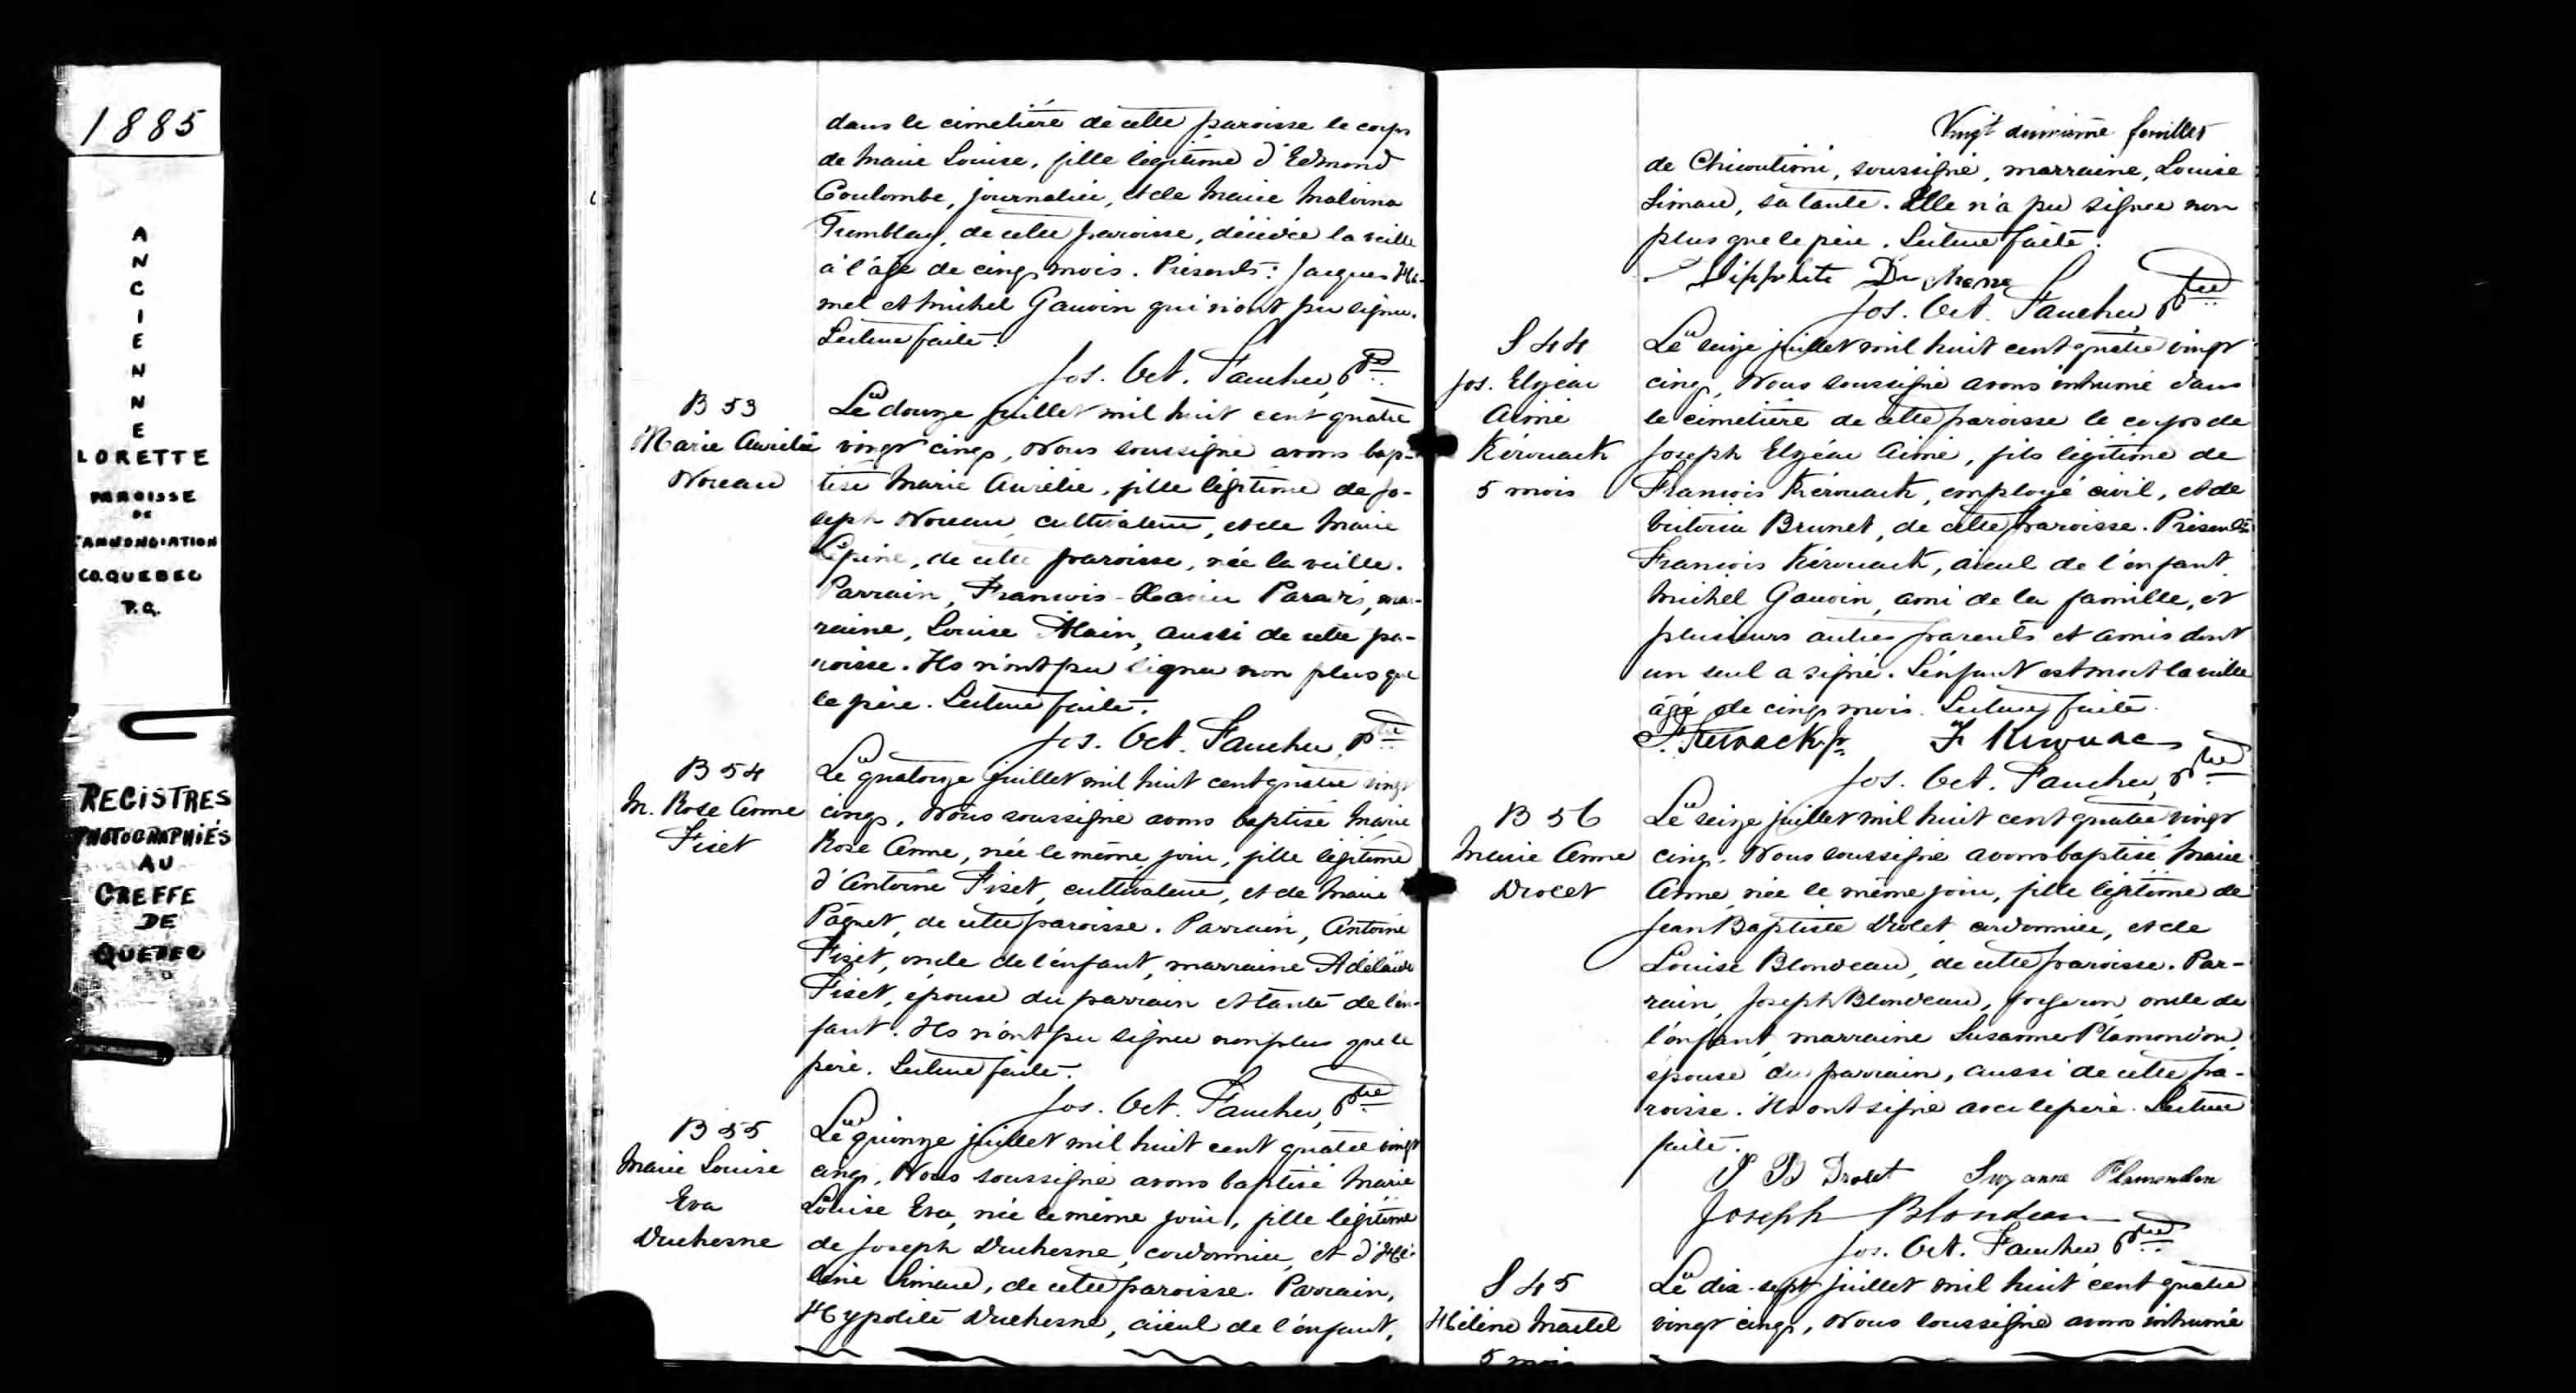 1885
A
N
C
I
E
N
N
E
LORETTE
PAROISSE
DE
L'ANNONCIATION
CO. QUEBEC
P.Q.
REGISTRES
PHOTOGRAPHIÉS
AU
GREFFE
DE
QUEBEC
dans le cimetière de cette paroisse le corps
de Marie Louise, fille légitime d'Edmond
Coulombe, journalier, et de Marie Malvina
Tremblay, de cette paroisse, décédée la veille
à l'âge de cinq mois. Présents: Jacques Ha-
mel et Michel Gauvin qui n'ont pu signer.
Lecture faite.
Jos. Oct. Faucher, Ptre
B 53
Marie Aurélie
Noreau
Le douze juillet mil huit cent quatre
vingt cinq, Nous soussigné avons bap-
tisé Marie Aurélie, fille légitime de Jo-
seph Noreau, cultivateur, et de Marie
Lépine, de cette paroisse, née la veille.
Parrain, François-Xavier Paradis, mar-
raine, Louise Alain, aussi de cette pa-
roisse. Ils n'ont pu signer non plus que
le père. Lecture faite.
Jos. Oct. Faucher, Ptre
B 54
M. Rose Anne
Fiset
Le quatorze juillet mil huit cent quatre vingt
cinq, Nous soussigné avons baptisé Marie
Rose Anne, née le même jour, fille légitime
d'Antoine Fiset, cultivateur, et de Marie
Paquet, de cette paroisse. Parrain, Antoine
Fiset, oncle de l'enfant, marraine Adélaïde
Fiset, épouse du parrain et tante de l'en-
fant. Ils n'ont pu signer non plus que le
père. Lecture faite.
Jos. Oct. Faucher, Ptre
B 55
Marie Louise
Eva
Duchesne
Le quinze juillet mil huit cent quatre vingt
cinq, Nous soussigné avons baptisé Marie
Louise Eva, née le même jour, fille légitime
de Joseph Duchesne, cordonnier, et d'Hé-
lène Simard, de cette paroisse. Parrain,
Hypolite Duchesne, aïeul de l'enfant,
Vingt deuxième feuillet
de Chicoutimi, soussigné, marraine, Louise
Simard, sa tante. Elle n'a pu signer non
plus que le père. Lecture faite.
Hippolite Duchesne
Jos. Oct. Faucher, Ptre
S 44
Jos. Elzéar
Aimé
Kérouack
5 mois
Le seize juillet mil huit cent quatre vingt
cinq, Nous soussigné avons inhumé dans
le cimetière de cette paroisse le corps de
Joseph Elzéar Aimé, fils légitime de
François Kérouack, employé civil, et de
Victoria Brunet, de cette paroisse. Présents
François Kérouack, aïeul de l'enfant,
Michel Gauvin, ami de la famille, et
plusieurs autres parents et amis dont
un seul a signé. L'enfant est mort la veille
âgé de cinq mois. Lecture faite.
F. Kirouack Jr. F Kirouac
Jos. Oct. Faucher, Ptre
B 56
Marie Anne
Drolet
Le seize juillet mil huit cent quatre vingt
cinq, Nous soussigné avons baptisé Marie
Anne, née le même jour, fille légitime de
Jean Baptiste Drolet, cordonnier, et de
Louise Blondeau, de cette paroisse. Par-
rain, Joseph Blondeau, forgeron, oncle de
l'enfant, marraine Susanne Plamondon,
épouse du parrain, aussi de cette pa-
roisse. Ils ont signé avec le père. Lecture
faite.
J B Drolet Suzanne Plamondon
Joseph Blondeau
Jos. Oct. Faucher, Ptre
S 45
Hélène Martel
5 mois
Le dix-sept juillet mil huit cent quatre
vingt cinq, Nous soussigné avons inhumé